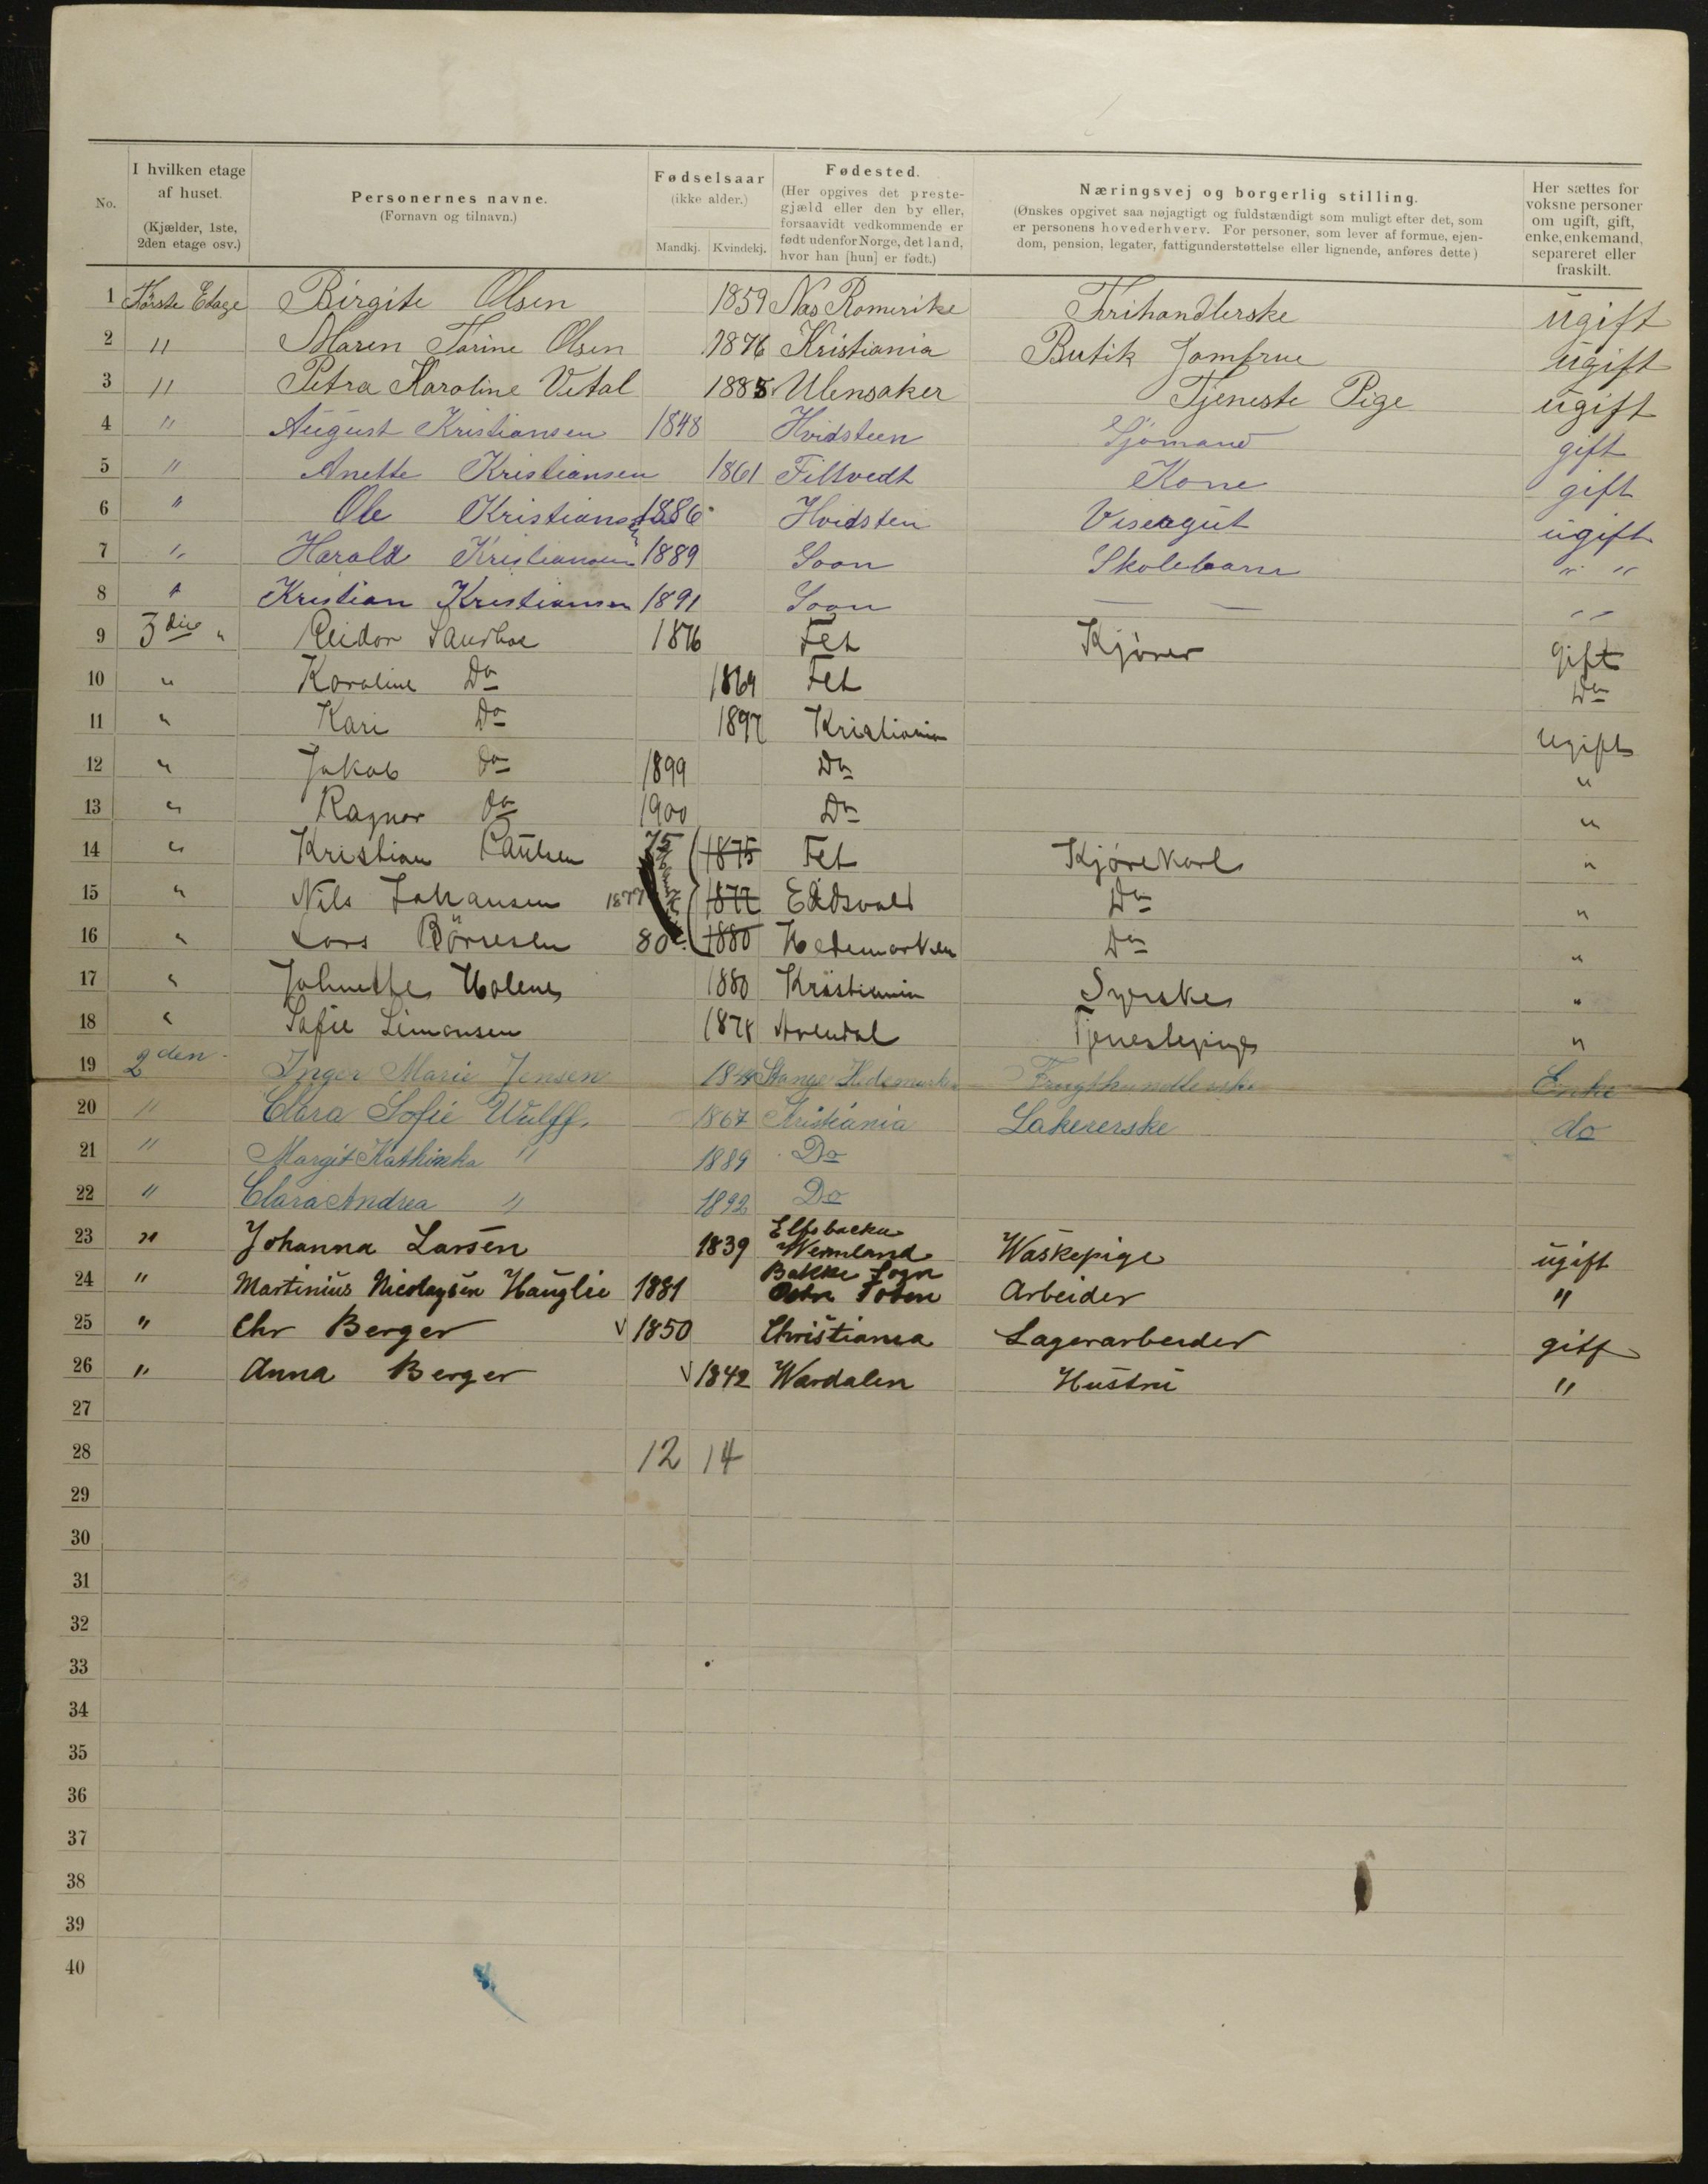 No.
I hvilken etage af huset. (Kjælder, 1ste, 2den etage osv.)
Personernes navne. (Fornavn og tilnavn.)
Fødselsaar (ikke alder.) Mandkj. Kvindekj.
Fødested. (Her opgives det prestegjæld eller den by eller, forsaavidt vedkommende er født udenfor Norge, det land, hvor han [hun] er født.)
Næringsvej og borgerlig stilling. (Ønskes opgivet saa nøjagtigt og fuldstændigt som muligt efter det, som er personens hovederhverv. For personer, som lever af formue, ejendom, pension, legater, fattigunderstøttelse eller lignende, anføres dette)
Her sættes for voksne personer om ugift, gift, enke, enkemand, separeret eller fraskilt.
1 Første Etage Birgite Olsen 1859 Nas Romerike ugift
2 " Maren Tarine Olsen 1876 Kristiania Butik Jomfrue ugift
3 " Petra Karoline Vetal 1885 Ulensaker Tjeneste Pige ugift
4 " August Kristiansen 1848 Hvidsteen Sjømand gift
5 " Anette Kristiansen 1861 Filtvedt Kone gift
6 " Ole Kristiansen 1886 Hvidsten Visergut ugift
7 " Harald Kristiansen 1889 Soon Skolebarn " "
8 " Kristian Kristiansen 1891 Soon — — " "
9 3die " Reidar Sandboe 1876 Fet Kjører gift
10 " Karoline Do 1869 Fet Do
11 " Kari Do 1897 Kristiania ugift
12 " Jakob Do 1899 Do "
13 " Ragnar Do 1900 Do "
14 " Kristian Paulsen 75 1875 Fet Kjørekarl "
15 " Nils Johansen 1877 1877 Eidsvold Do "
16 " Lars Börresen 80 1880 Hedemarken Do "
17 " Johnette Holene 1880 Kristiania Syerske "
18 " Sofie Simonsen 1878 Arendal Tjenestepige "
19 2den Inger Marie Jensen Stange Hedemarken Frugthandlerske Enke
20 " Clara Sofie Wulff. 1867 Kristiania Lakererske do
21 " Margit Kathinka " 1889 Do
22 " Clara Andrea " 1892 Do
23 " Johanna Larsen 1839 Elfsbacka Wermland Waskepige ugift
24 " Martinius Nicolaysen Hauglie 1881 Bakke Sogn Østre Toten Arbeider "
25 " Chr Berger √ 1850 Christiania Lagerarbeider gift
26 " Anna Berger √ 1842 Wardalen Hustru "
27
28 12 14
29
30
31
32
33
34
35
36
37
38
39
40